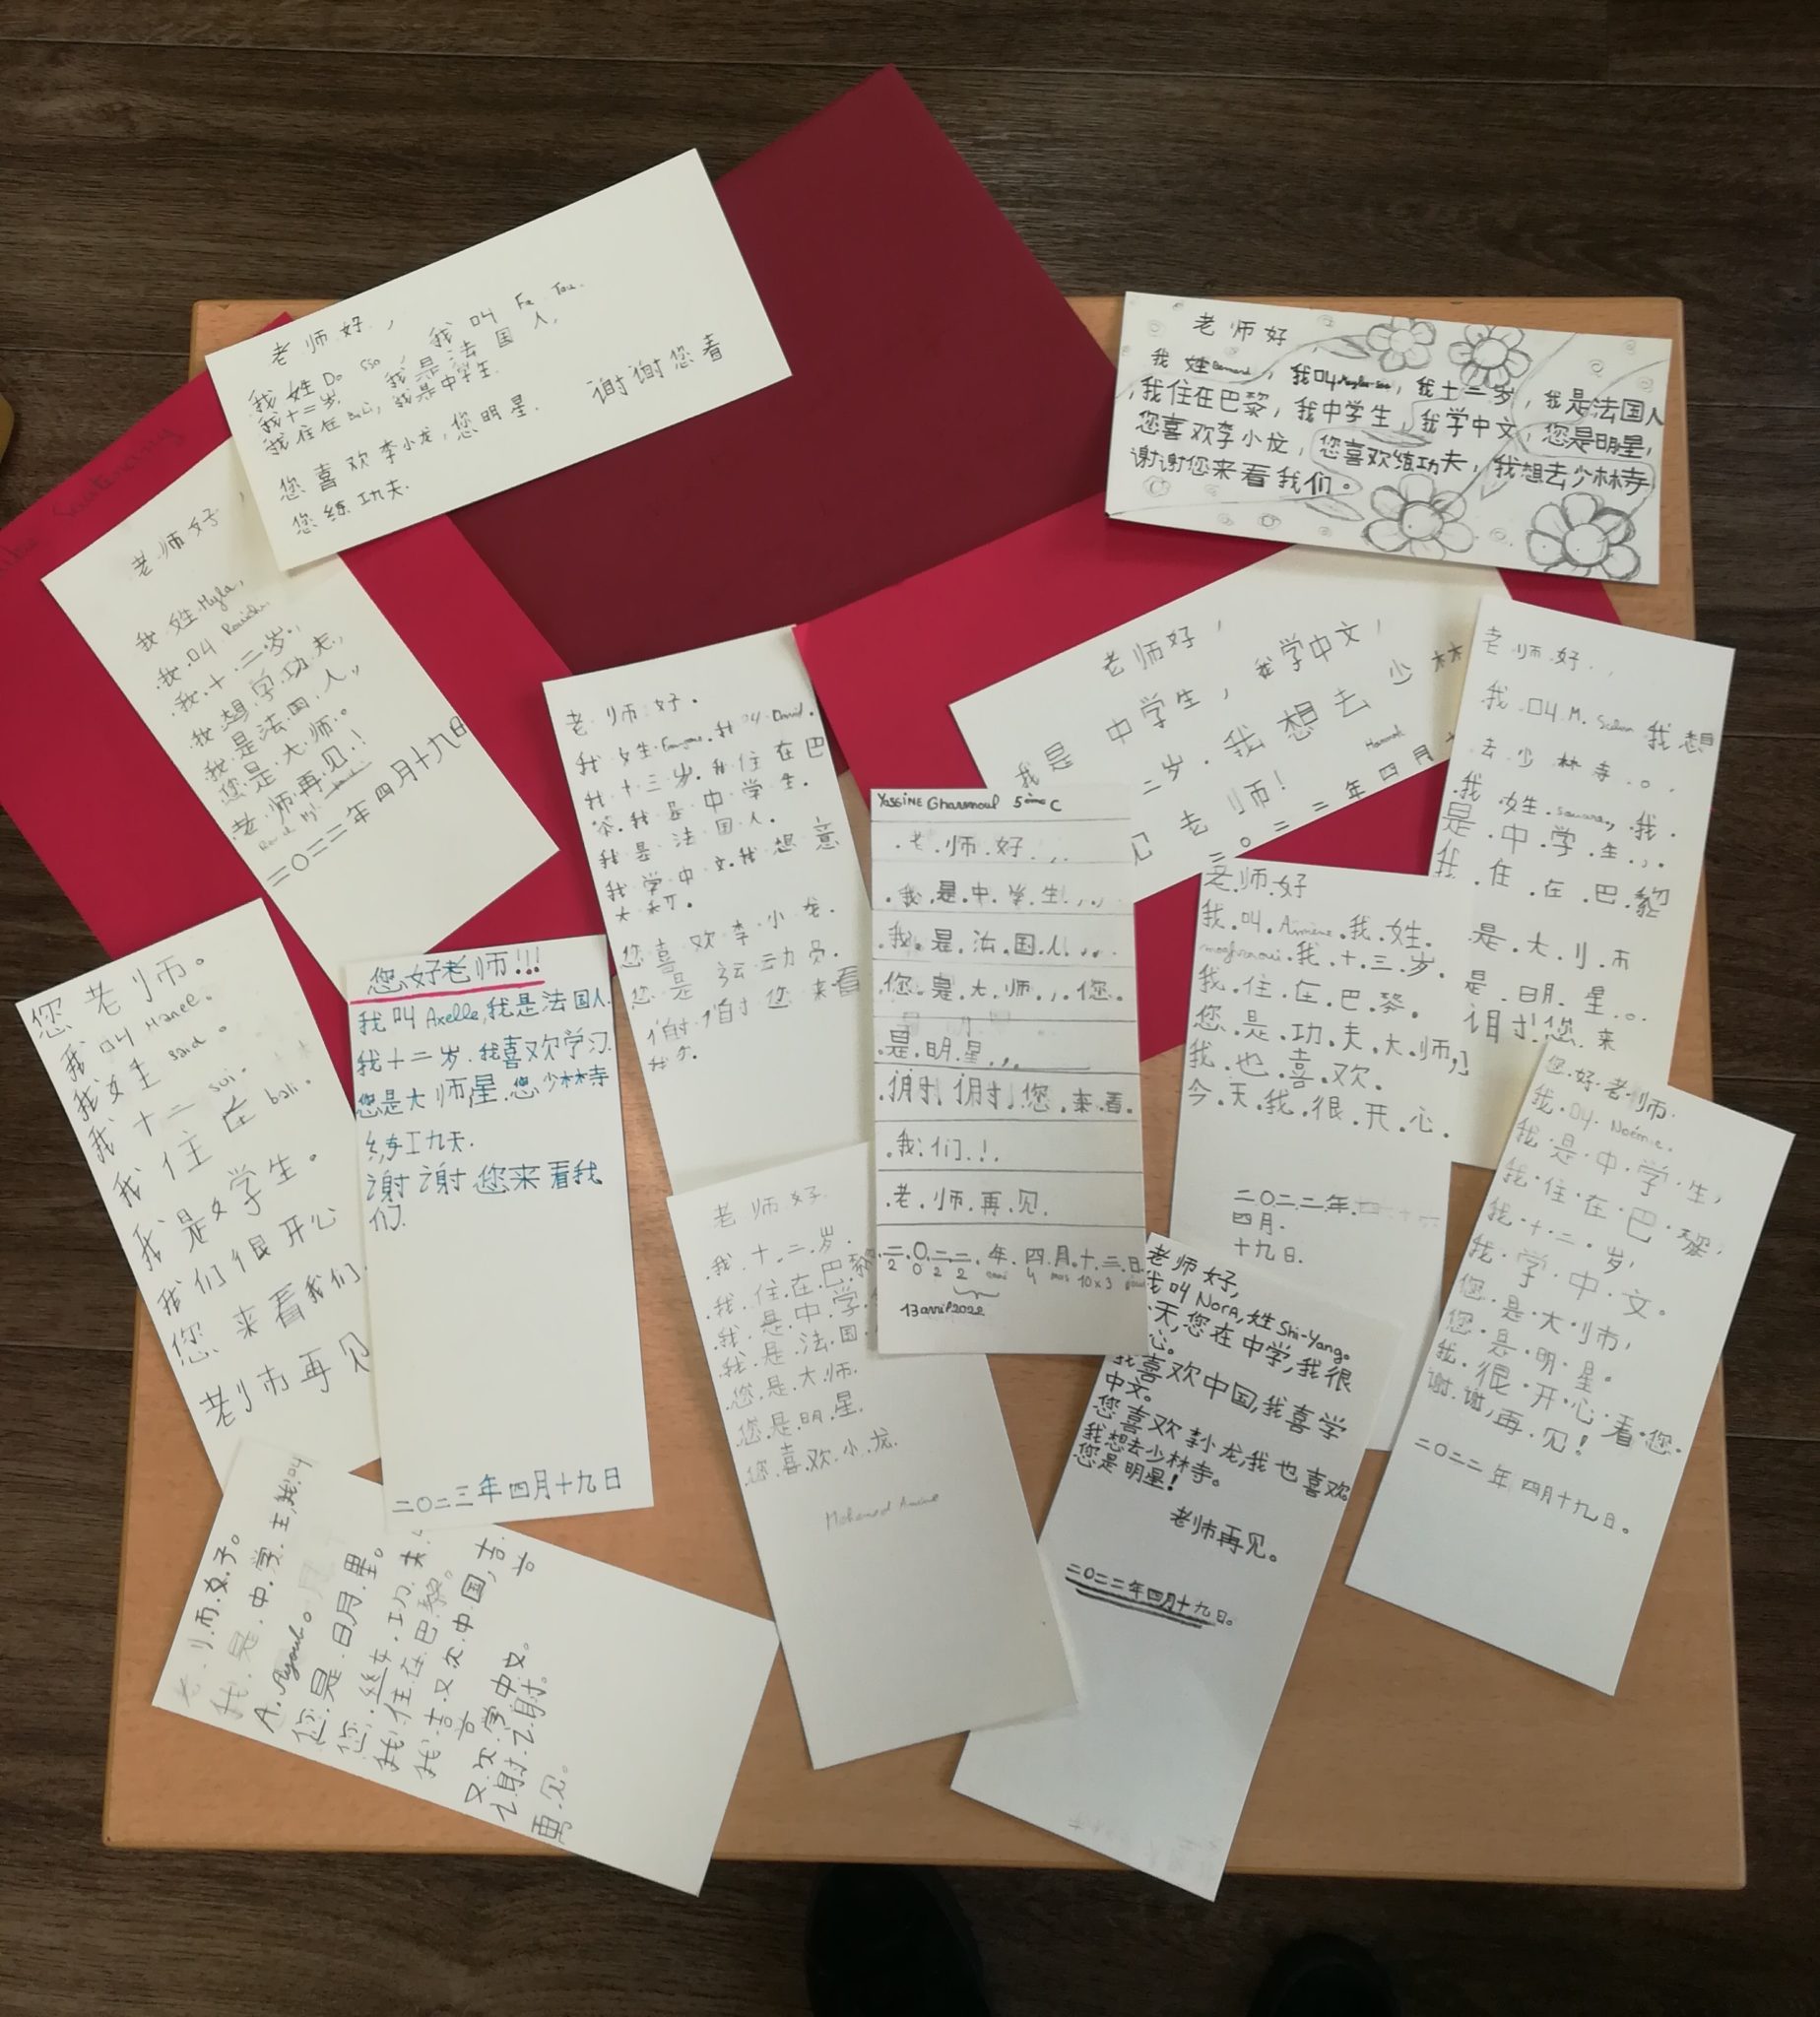 老师好,
我姓Do sso, 我叫 Fa Tou.
我十二岁. 我是法国人,
我住在BaLi, 我是中学生.
您喜欢李小龙, 您明星. 谢谢您看
您练功夫.
老师好,
我姓, 我叫, 我十二岁, 我是法国人
, 我住在巴黎, 我中学生, 我学中文, 您是明星,
您喜欢李小龙, 您喜欢练功夫, 我想去少林寺
谢谢您来看我们。
老师好,
我姓Myla,
我.叫
.我.十.二.岁.,
.我.想.学.功.夫.,
我.是.法.国.人.,
您.是.大.师.。
老.师.再.见.!
二〇二二年四月十九日
老师好.
我姓 我叫 David.
我十三岁. 我住在巴
黎. 我是中学生.
我是法国人.
我学中文. 我想意
大利.
您喜欢李小龙.
您是运动员.
谢谢您来看
我们.
老师好,
我是中学生, 我学中文,
二岁. 我想去少林
见老师!
二〇二二年四月十
老.师.好.,
我.叫 M. Selma 我想
去少林寺。.
.我.姓. .我.
是.中.学.生.,.
我.住.在.巴.黎
是.大.师
是.明.星.。.
谢!您.来
YASSINE Gharmoul 5ème C
.老.师.好.,.
.我.是.中.学.生.,.,
.我.是.法.国.人.,.
.您.是.大.师.,.您.
.是.明.星.,.
.谢谢您.来.看.
.我.们.!.
.老.师.再.见.
.二.〇.二二.年.四.月.十.三.日
2 0 2 2 4 mois 10x3
13 avril 2022
老.师.好
我.叫. .我.姓.
.我.十.三.岁.
我.住.在.巴.黎.
您.是.功.夫.大.师,
我.也.喜.欢.
今.天.我.很.开.心.
二〇二二年.
四月.
十九日.
您老师。
我叫Manel.
我姓said.
我十二sui.
我住在bali.
我是文学生。
我们很开心
您来看我们.
老师再见
您好老师!!!
我叫 Axelle, 我是法国人.
我十二岁. 我喜欢学习.
您是大师星. 您少林寺
练工九天.
谢谢您来看我
们.
二〇二三年四月十九日
老师好.
.我.十.二.岁.
.我.住.在.巴.黎.
.我.是.中.学.
.我.是.法.国.
.您.是.大.师.
.您.是.明.星.
.您.喜.欢.小.龙.
Mohamed Amine
老师好,
我叫 Nora, 姓 Shi-Yang。
天, 您在中学, 我很
心。
我喜欢中国, 我喜学
中文。
您喜欢李小龙, 我也喜欢
我想去少林寺。
您是明星!
老师再见。
二〇二二年四月十九日。
您.好.老.师.
我.叫. Noémie.
我.是.中.学.生,
我.住.在.巴.黎,
我.十.二.岁,
我.学.中.文。
您.是.大.师,
您.是.明.星。
我.很.开.心.看.您.
谢.谢, 再.见!
二〇二二年四月十九日。
老.师.好。
我.是.中.学.生, 我.叫
A. Ayoub。
您.是.明.星。
您.练.功.夫.
我.住.在.巴.黎。
我.喜.欢.中.国, 喜
欢.学.中.文。
谢.谢。
再.见。